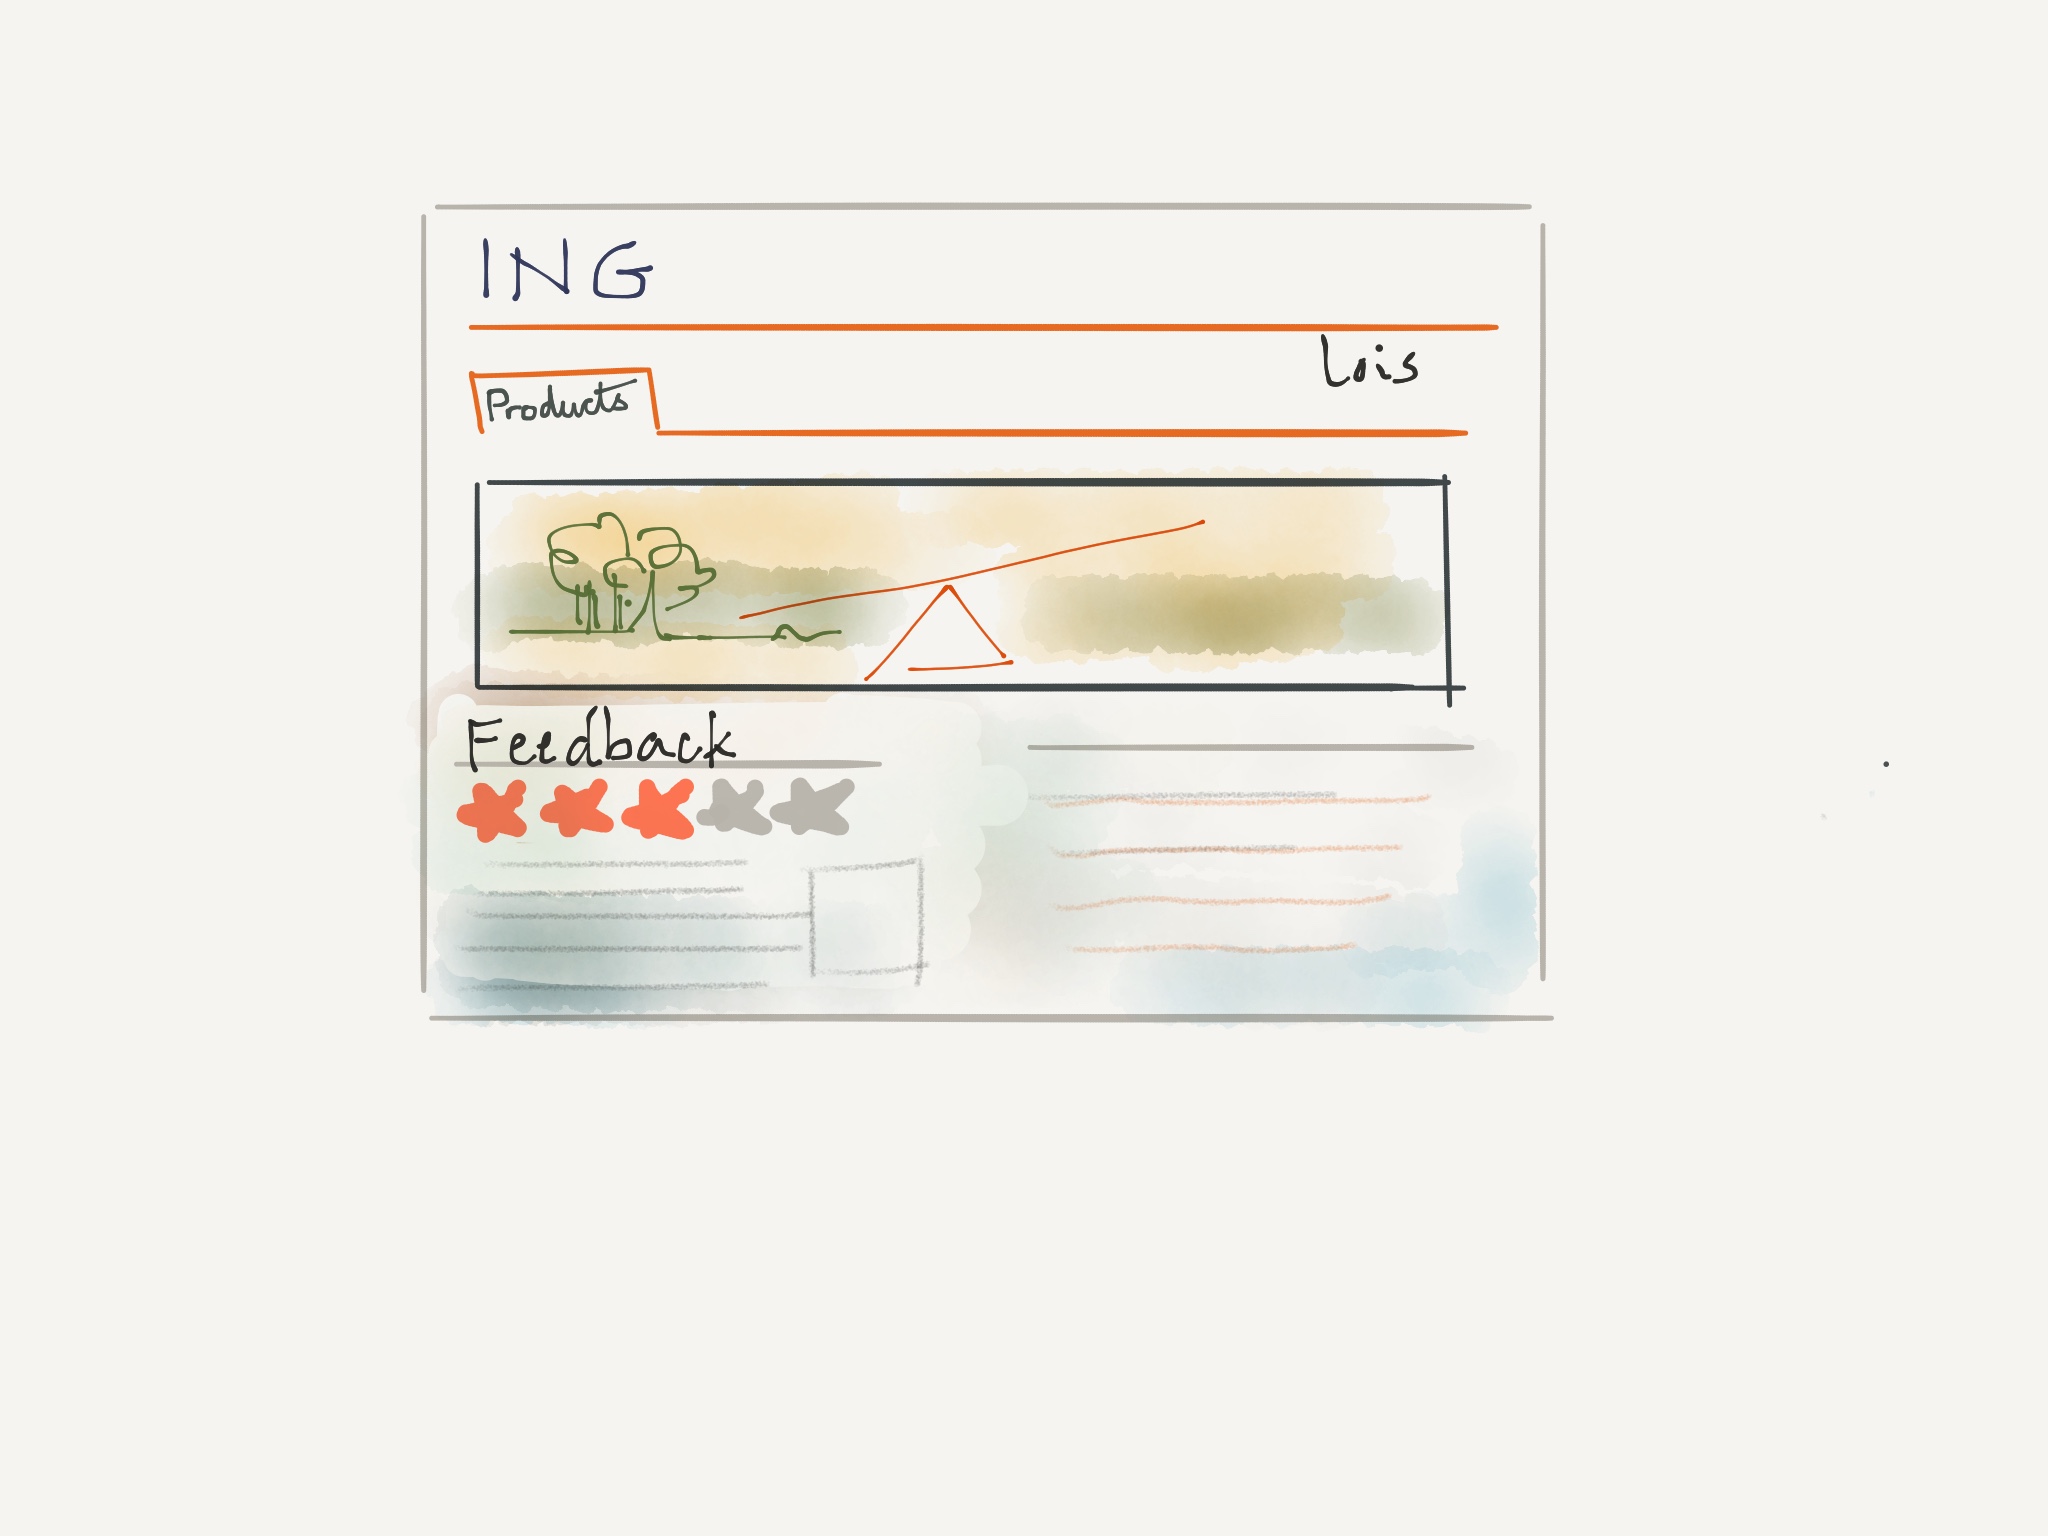 ING
Lois
Products
Feedback